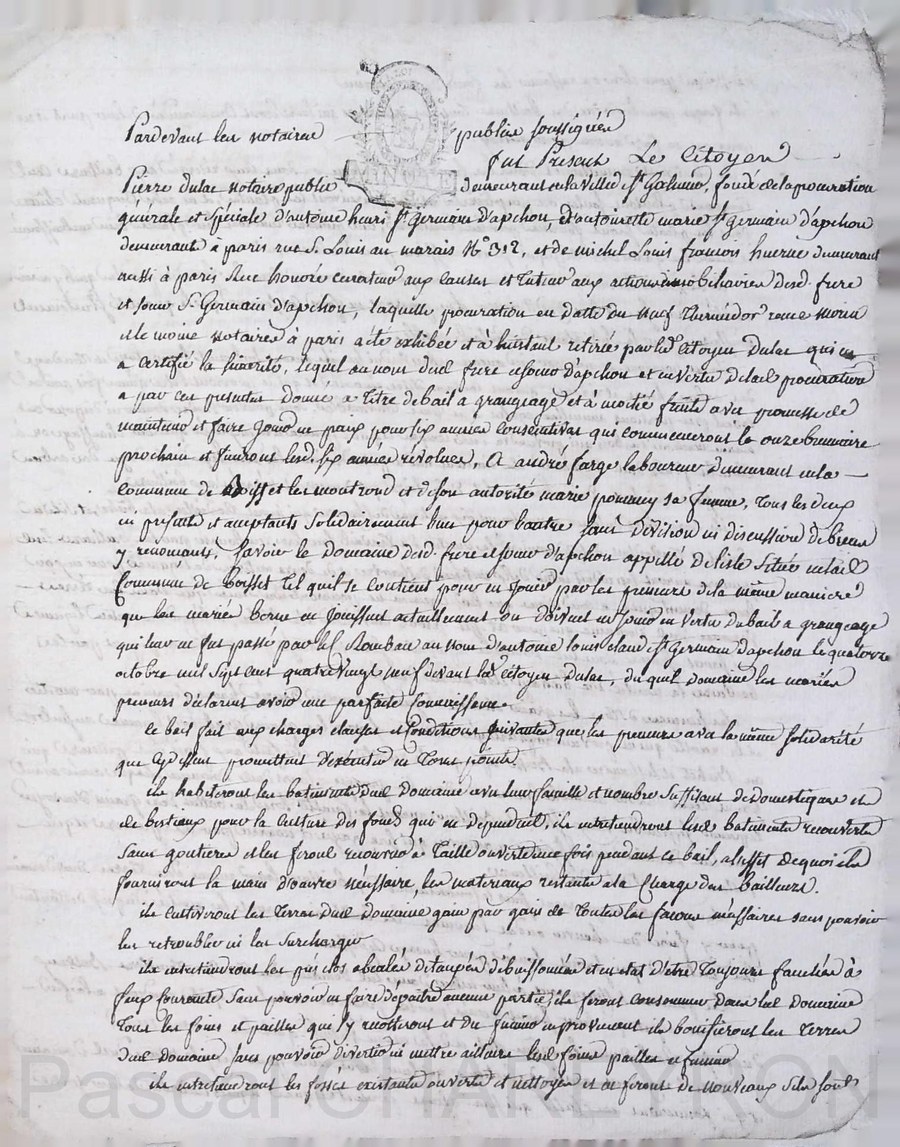 Pardevant les notaires publics soussignés
fut Présent Le Citoyen
Pierre dulac notaire public demeurant en la ville de St Galmier, fondé de la procuration
générale et spéciale d'antoine henri St Germain D'apchon, et d'antoinette marie St germain d'apchon
demeurants à paris rue St Louis au marais No 312, et de michel Louis francois demeurant
aussi à paris Rue honoré curateur aux causes et Tuteur aux actions immobiliaires desd. frere
et soeur St Germain d'apchon, laquelle procuration en datte du neuf Thermidor recue
et le moine notaires à paris a été exhibée et à l'instant retirée par led Citoyen Dulac qui en
a certifié la sincerité, lequel au nom desd frere et soeur d'apchon et en vertu de lad procuration
a par ces presentes donné a titre de bail a grangeage et à moitié fruits avec promesse de
maintenir et faire jouir en paix pour six années consecutives qui commenceront le onze brumaire
prochain et finiront lesd. six années révolues, A andré farge laboureur demeurant en la
commune de Boisset les montrond et de son autorité marie sa femme, Tous les deux
ici presents et acceptants solidairement l'un pour l'autre sans division ni discussion de biens
y renoncants, Savoir le Domaine desd. frere et soeur d'apchon appellé de l'isle Situé en lad
Commune de Boisset tel qu'il se contient pour en Jouir par les preneurs de la même maniere
que les mariés en Jouissent actuellement ou doivent en jouir en vertu du bail a grangeage
qui leur en fut passé par le Sr au nom d'antoine louis claud St Germain dapchon le quatorze
octobre mil sept cent quatrevingt neuf devant led Citoyen dulac, du quel domaine les mariés
preneurs déclarent avoir une parfaite connoissance.
le bail fait aux charges clauses et Conditions suivantes que les preneurs avec la même solidarité
que cy dessus promettent d'exécuter en tous points.
ils habiteront les batiments dud domaine avec leur famille et nombre suffisant de domestiques et
de bestiaux pour la culture des fonds qui en dependent, ils entretiendront lesd batiments recouverts
sans goutieres et les feront recouvrir à Taille ouverte une fois pendant ce bail, a l'effet de quoi ils
fourniront la main d'oeuvre nécessaire, les materiaux restants a la Charge des bailleurs.
ils cultiveront les Terres dud domaine gain par gain de Toutes les facons nécessaires sans pouvoir
les retroubler ni les surcharger
ils entretiendront les prés clos de taupes débuissonnés et en etat d'être Toujours fauchés à
faux courante, sans pouvoir en faire dépaitre aucune partie, ils feront consommer dans led domaine
Tous les foins et pailles qui s'y recolteront et du fumier en provenant ils bonifieront les Terres
dud domaine, sans pouvoir divertir ni mettre ailleurs lesd foins pailles et fumier
ils entretiendront les fossés existants ouverts et nettoyés et en feront de nouveaux si les fonds
Pascal CHAREYRON